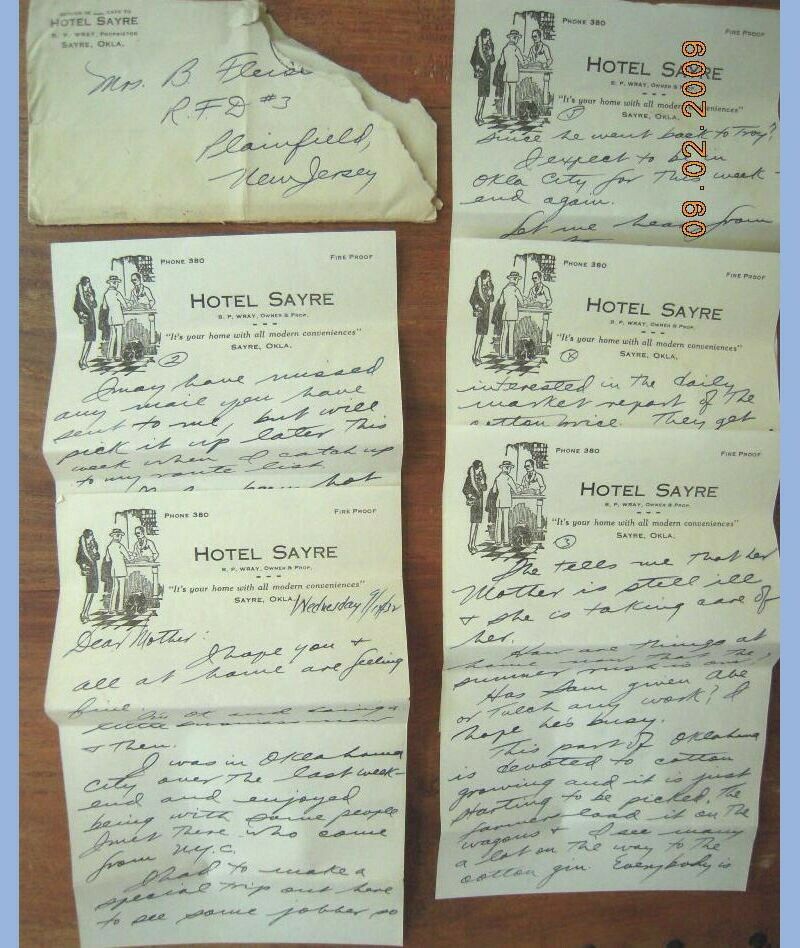 HOTEL SAYRE
B. P. WRAY, PROPRIETOR
SAYRE, OKLA.
Mrs. B.
R.F.D #3
Plainfield,
New Jersey
PHONE 380
FIRE PROOF
HOTEL SAYRE
B. P. WRAY, OWNER & PROP.
"It's your home with all modern conveniences"
SAYRE, OKLA.
2
I may have missed
any mail you have
sent to me, but will
pick it up later this
week when I catch up
to my route list.
hot
PHONE 380
FIRE PROOF
HOTEL SAYRE
B. P. WRAY, OWNER & PROP.
"It's your home with all modern conveniences"
SAYRE, OKLA.
Wednesday 9/
Dear Mother:
I hope you &
all at home are feeling
fine.
& then.
I was in Oklahoma
City over the last week-
end and enjoyed
being with some people
I met there who come
from N.Y.C.
I had to make a
special trip out here
to see some jobber so
PHONE 380
FIRE PROOF
HOTEL SAYRE
B. P. WRAY, OWNER & P
"It's your home with all modern conveniences"
SAYRE, OKLA.
5
since he went back to Troy?
I expect to be in
Okla City for this week-
end again.
Let me hear from
09.02.2009
PHONE 380
FIRE PROOF
HOTEL SAYRE
B. P. WRAY, OWNER & PROP.
"It's your home with all modern conveniences"
SAYRE, OKLA.
4
interested in the daily
market report of the
cotton price. They get
PHONE 380
FIRE PROOF
HOTEL SAYRE
B. P. WRAY, OWNER & PROP.
"It's your home with all modern conveniences"
SAYRE, OKLA.
3
She tells me that her
Mother is still ill
& she is taking care of
her.
How are things at
home now that the
summer rush is over.
Has Sam given Abe
or Tutch any work? I
hope he's busy.
This part of Oklahoma
is devoted to cotton
growing and it is just
starting to be picked, the
farmers load it on the
wagons & I see many
a lot on the way to the
cotton gin. Everybody is